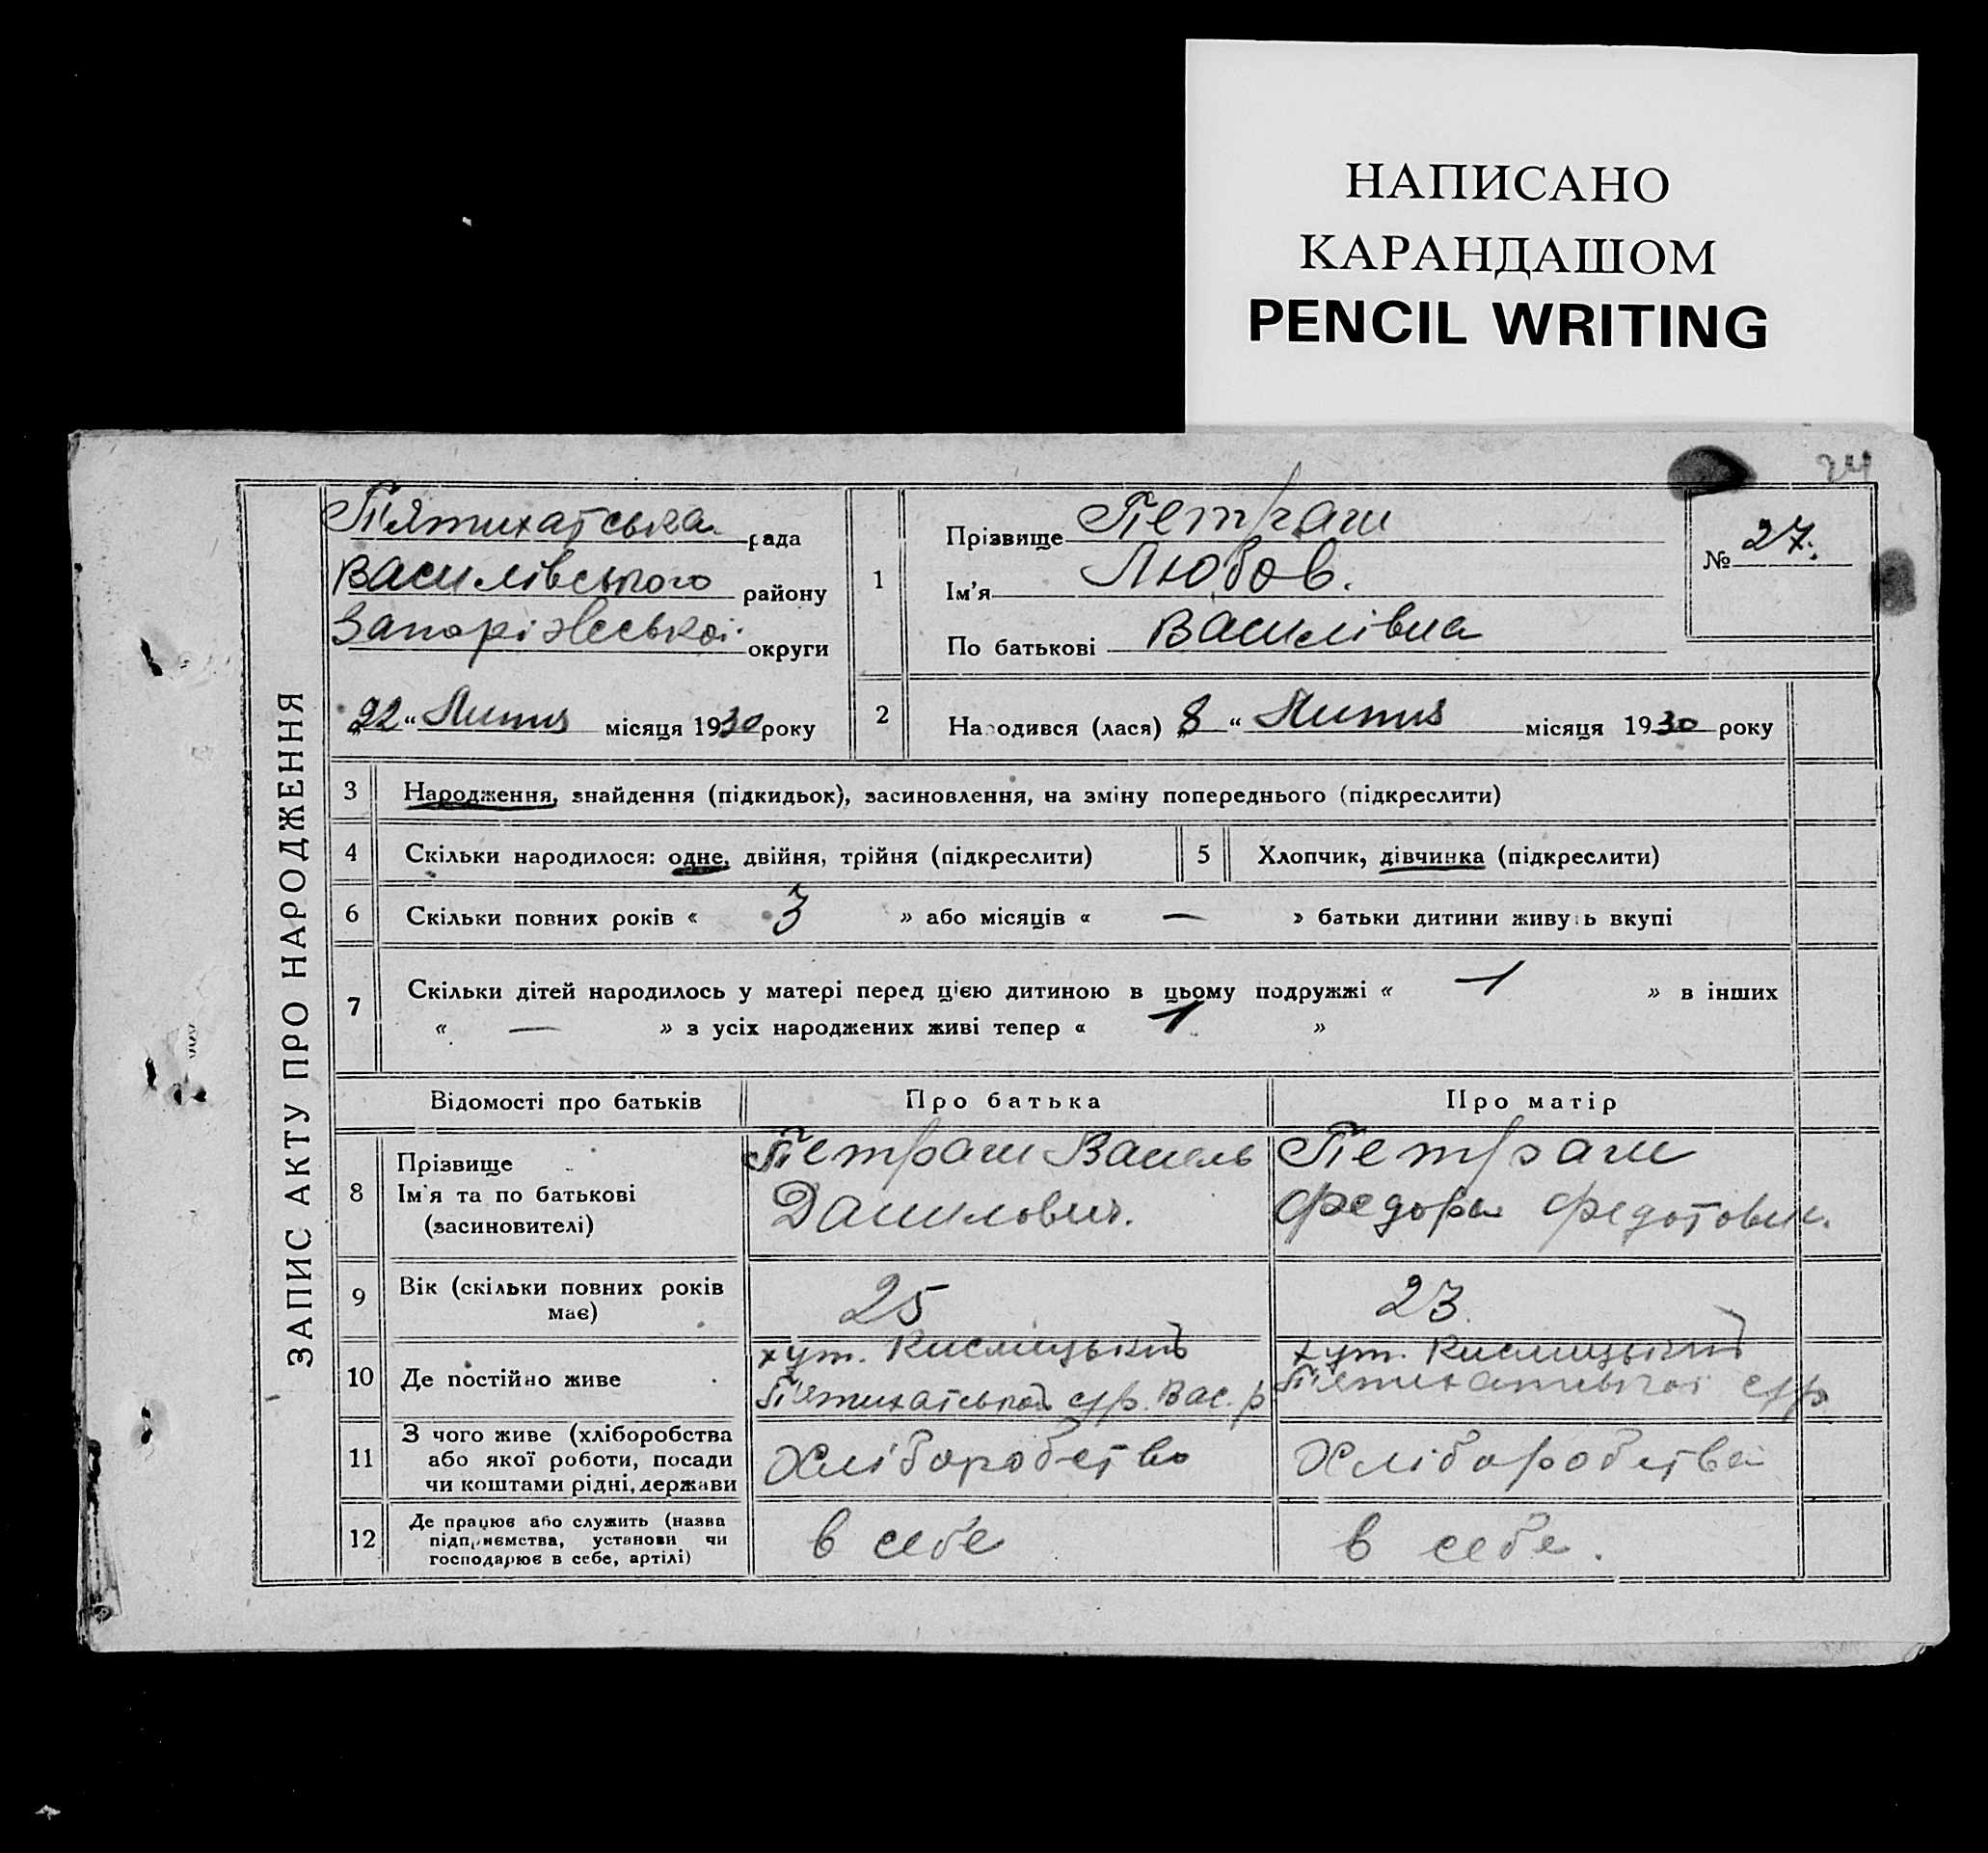 НАПИСАНО
КАРАНДАШОМ
PENCIL WRITING
ЗАПИС АКТУ ПРО НАРОДЖЕННЯ
П'ятихатська рада
Василівського району
Запоріжської округи
„22“ Липня місяця 1930 року
1
Прізвище Петраш
Ім'я Любов.
По батькові Василівна
№ 27.
2 Народився (лася) „8“ Липня місяця 1930 року
3 Народження, знайдення (підкидьок), засиновлення, на зміну попереднього (підкреслити)
4 Скільки народилося: одне, двійня, трійня (підкреслити) 5 Хлопчик, дівчинка (підкреслити)
6 Скільки повних років « 3 » або місяців « — » батьки дитини живуть вкупі
7 Скільки дітей народилось у матері перед цією дитиною в цьому подружжі « 1 » в інших
« — » з усіх народжених живі тепер « 1 »
Відомості про батьків Про батька Про матір
8 Прізвище
Ім'я та по батькові
(засиновителі)
Петраш Василь
Данилович.
Петраш
Федора Федотовн.
9 Вік (скільки повних років
має)
25
23
10 Де постійно живе
хут.
П'ятихатської с/р. Вас. р
хут.
П'ятихатської с/р
11 З чого живе (хліборобства
або якої роботи, посади
чи коштами рідні, держави
Хліборобство
Хліборобства
12 Де працює або служить (назва
підприємства, установи чи
господарює в себе, артілі)
в себе
в себе.